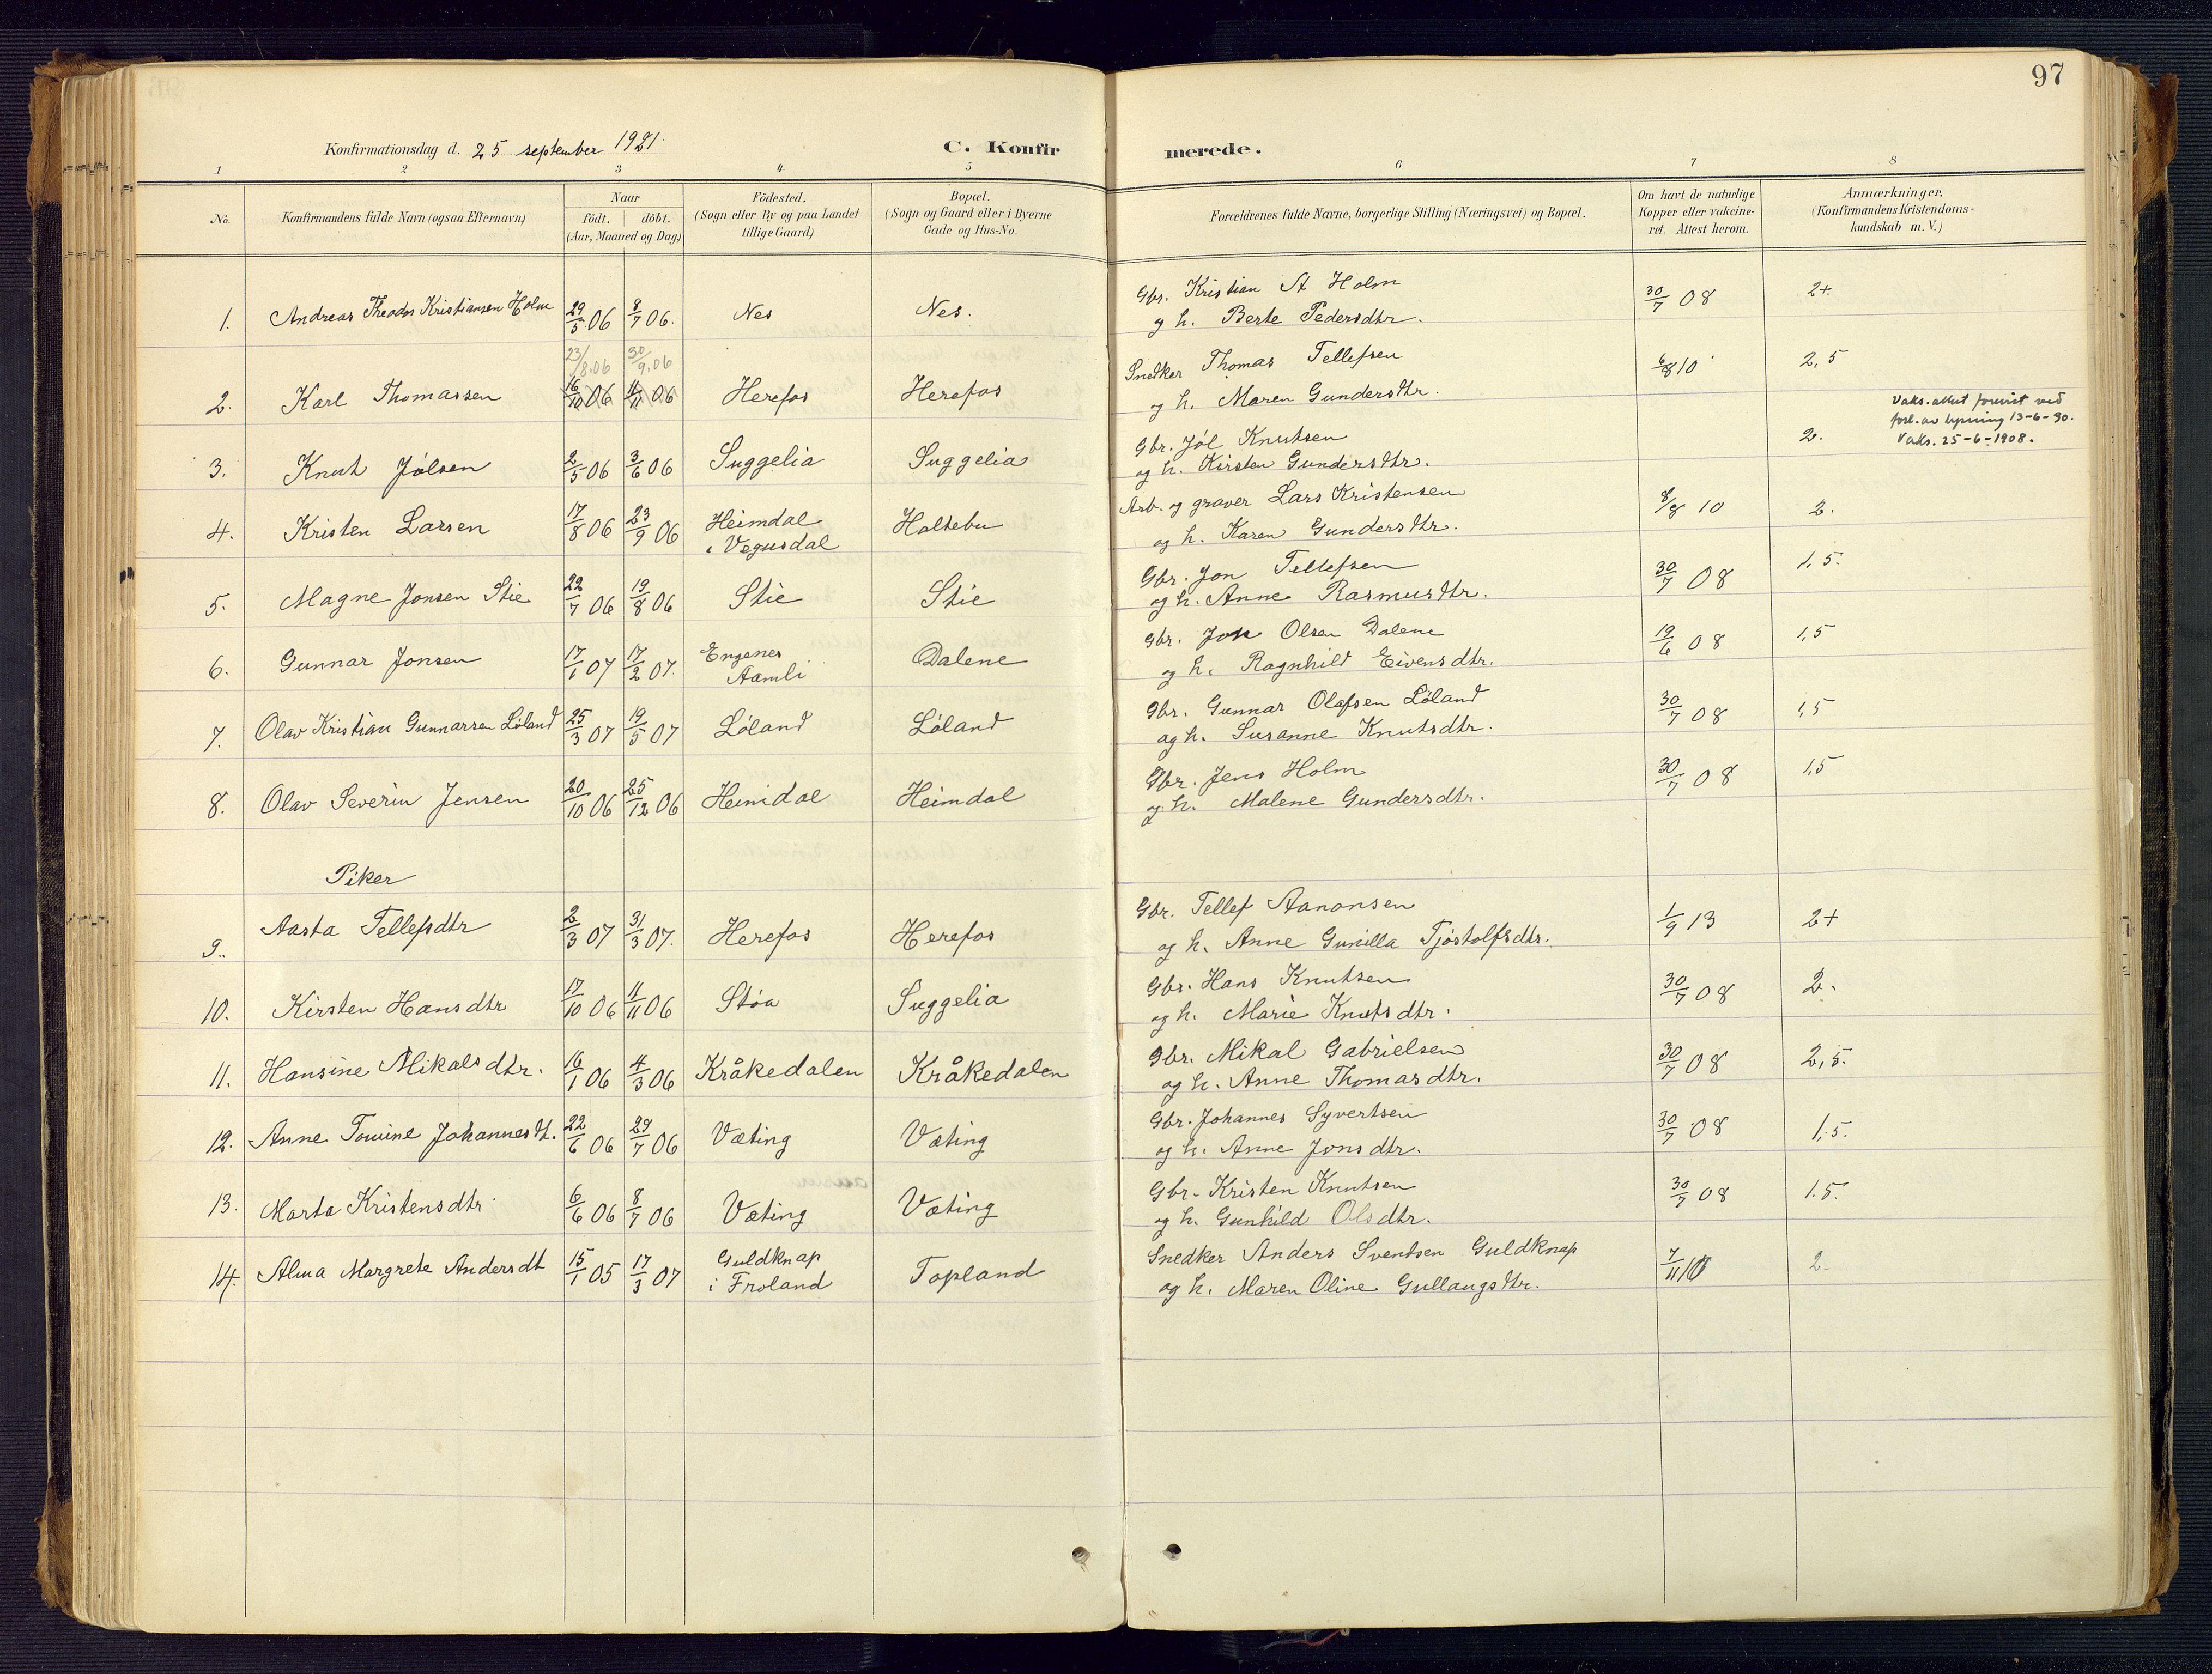 97
Konfirmationsdag d. 25 september 1921.
C. Konfirmerede.
1 2 3 4 5 6 7 8
No. Konfirmandens fulde Navn (ogsaa Efternavn) Naar födt. döbt. (Aar, Maaned og Dag) Födested. (Sogn eller By og paa Landet tillige Gaard) Bopæl. (Sogn og Gaard eller i Byerne Gade og Hus-No. Forældrenes fulde Navne, borgerlige Stilling (Næringsvei) og Bopæl. Om havt de naturlige Kopper eller vakcineret. Attest herom. Anmærkninger. (Konfirmandens Kristendomskundskab m. V.)
1. Andreas Theodor Kristiansen Holm 29/5 06 8/7 06. Nes Nes. Gbr. Kristian A Holm 30/7 08 2+
og h. Berte Pedersdtr.
23/8.06 30/9.06
2. Karl Thomassen 16/10 06 11/11 06 Herefos Herefos Snedker Thomas Tellefsen 6/8 10 2,5
og h. Maren Gundersdtr.
3. Knut Jølsen 2/5 06 3/6 06 Suggelia Suggelia Gbr. Jøl Knutsen 2. Vaks. attest forevist ved
og h. Kirsten Gundersdtr. forl. av lysning 13-6-30.
Vaks. 25-6-1908.
4. Kristen Larsen 17/8 06 23/9 06 Heimdal Haltebu Arb. og graver Lars Kristensen 8/8 10 2.
i Vegusdal og h. Karen Gundersdtr.
5. Magne Jonsen Stie 22/7 06 19/8 06 Stie Stie Gbr. Jon Tellefsen 30/7 08 1,5.
og h. Anne Rasmusdtr.
6. Gunnar Jonsen 17/1 07 17/2 07. Engenes Dalene Gbr. Jon Olsen Dalene 19/6 08 1,5
Aamli og h. Ragnhild Eivensdtr.
7. Olav Kristian Gunnarsen Løland 25/3 07 19/5 07 Løland Løland Gbr. Gunnar Olafsen Løland 30/7 08 1,5
og h. Susanne Knutsdtr.
8. Olav Severin Jensen 20/10 06 25/12 06 Heimdal Heimdal Gbr. Jens Holm 30/7 08 1,5
og h. Malene Gundersdtr.
Piker
9. Aasta Tellefsdtr 2/3 07 31/3 07. Herefos Herefos Gbr. Tellef Aanonsen 1/9 13 2+
og h. Anne Gunilla Tjøstolfsdtr.
10. Kirsten Hansdtr 17/10 06 11/11 06 Støa Suggelia Gbr. Hans Knutsen 30/7 08 2.
og h. Marie Knutsdtr.
11. Hansine Mikalsdtr. 16/1 06 4/3 06 Kråkedalen Kråkedalen Gbr. Mikal Gabrielsen 30/7 08 2,5.
og h. Anne Thomasdtr.
12. Anne Tomine Johannesdt. 22/6 06 29/7 06 Væting Væting Gbr. Johannes Syvertsen 30/7 08 1,5.
og h. Anne Jonsdtr.
13. Marta Kristensdtr. 6/6 06 8/7 06 Væting Væting Gbr. Kristen Knutsen 30/7 08 1.5.
og h. Gunhild Olsdtr.
14. Alma Margrete Andersdt 15/1 05 17/3 07 Guldknap Topland Snedker Anders Svendsen Guldknap 7/11 10 2
i Froland og h. Maren Oline Gullaugsdtr.